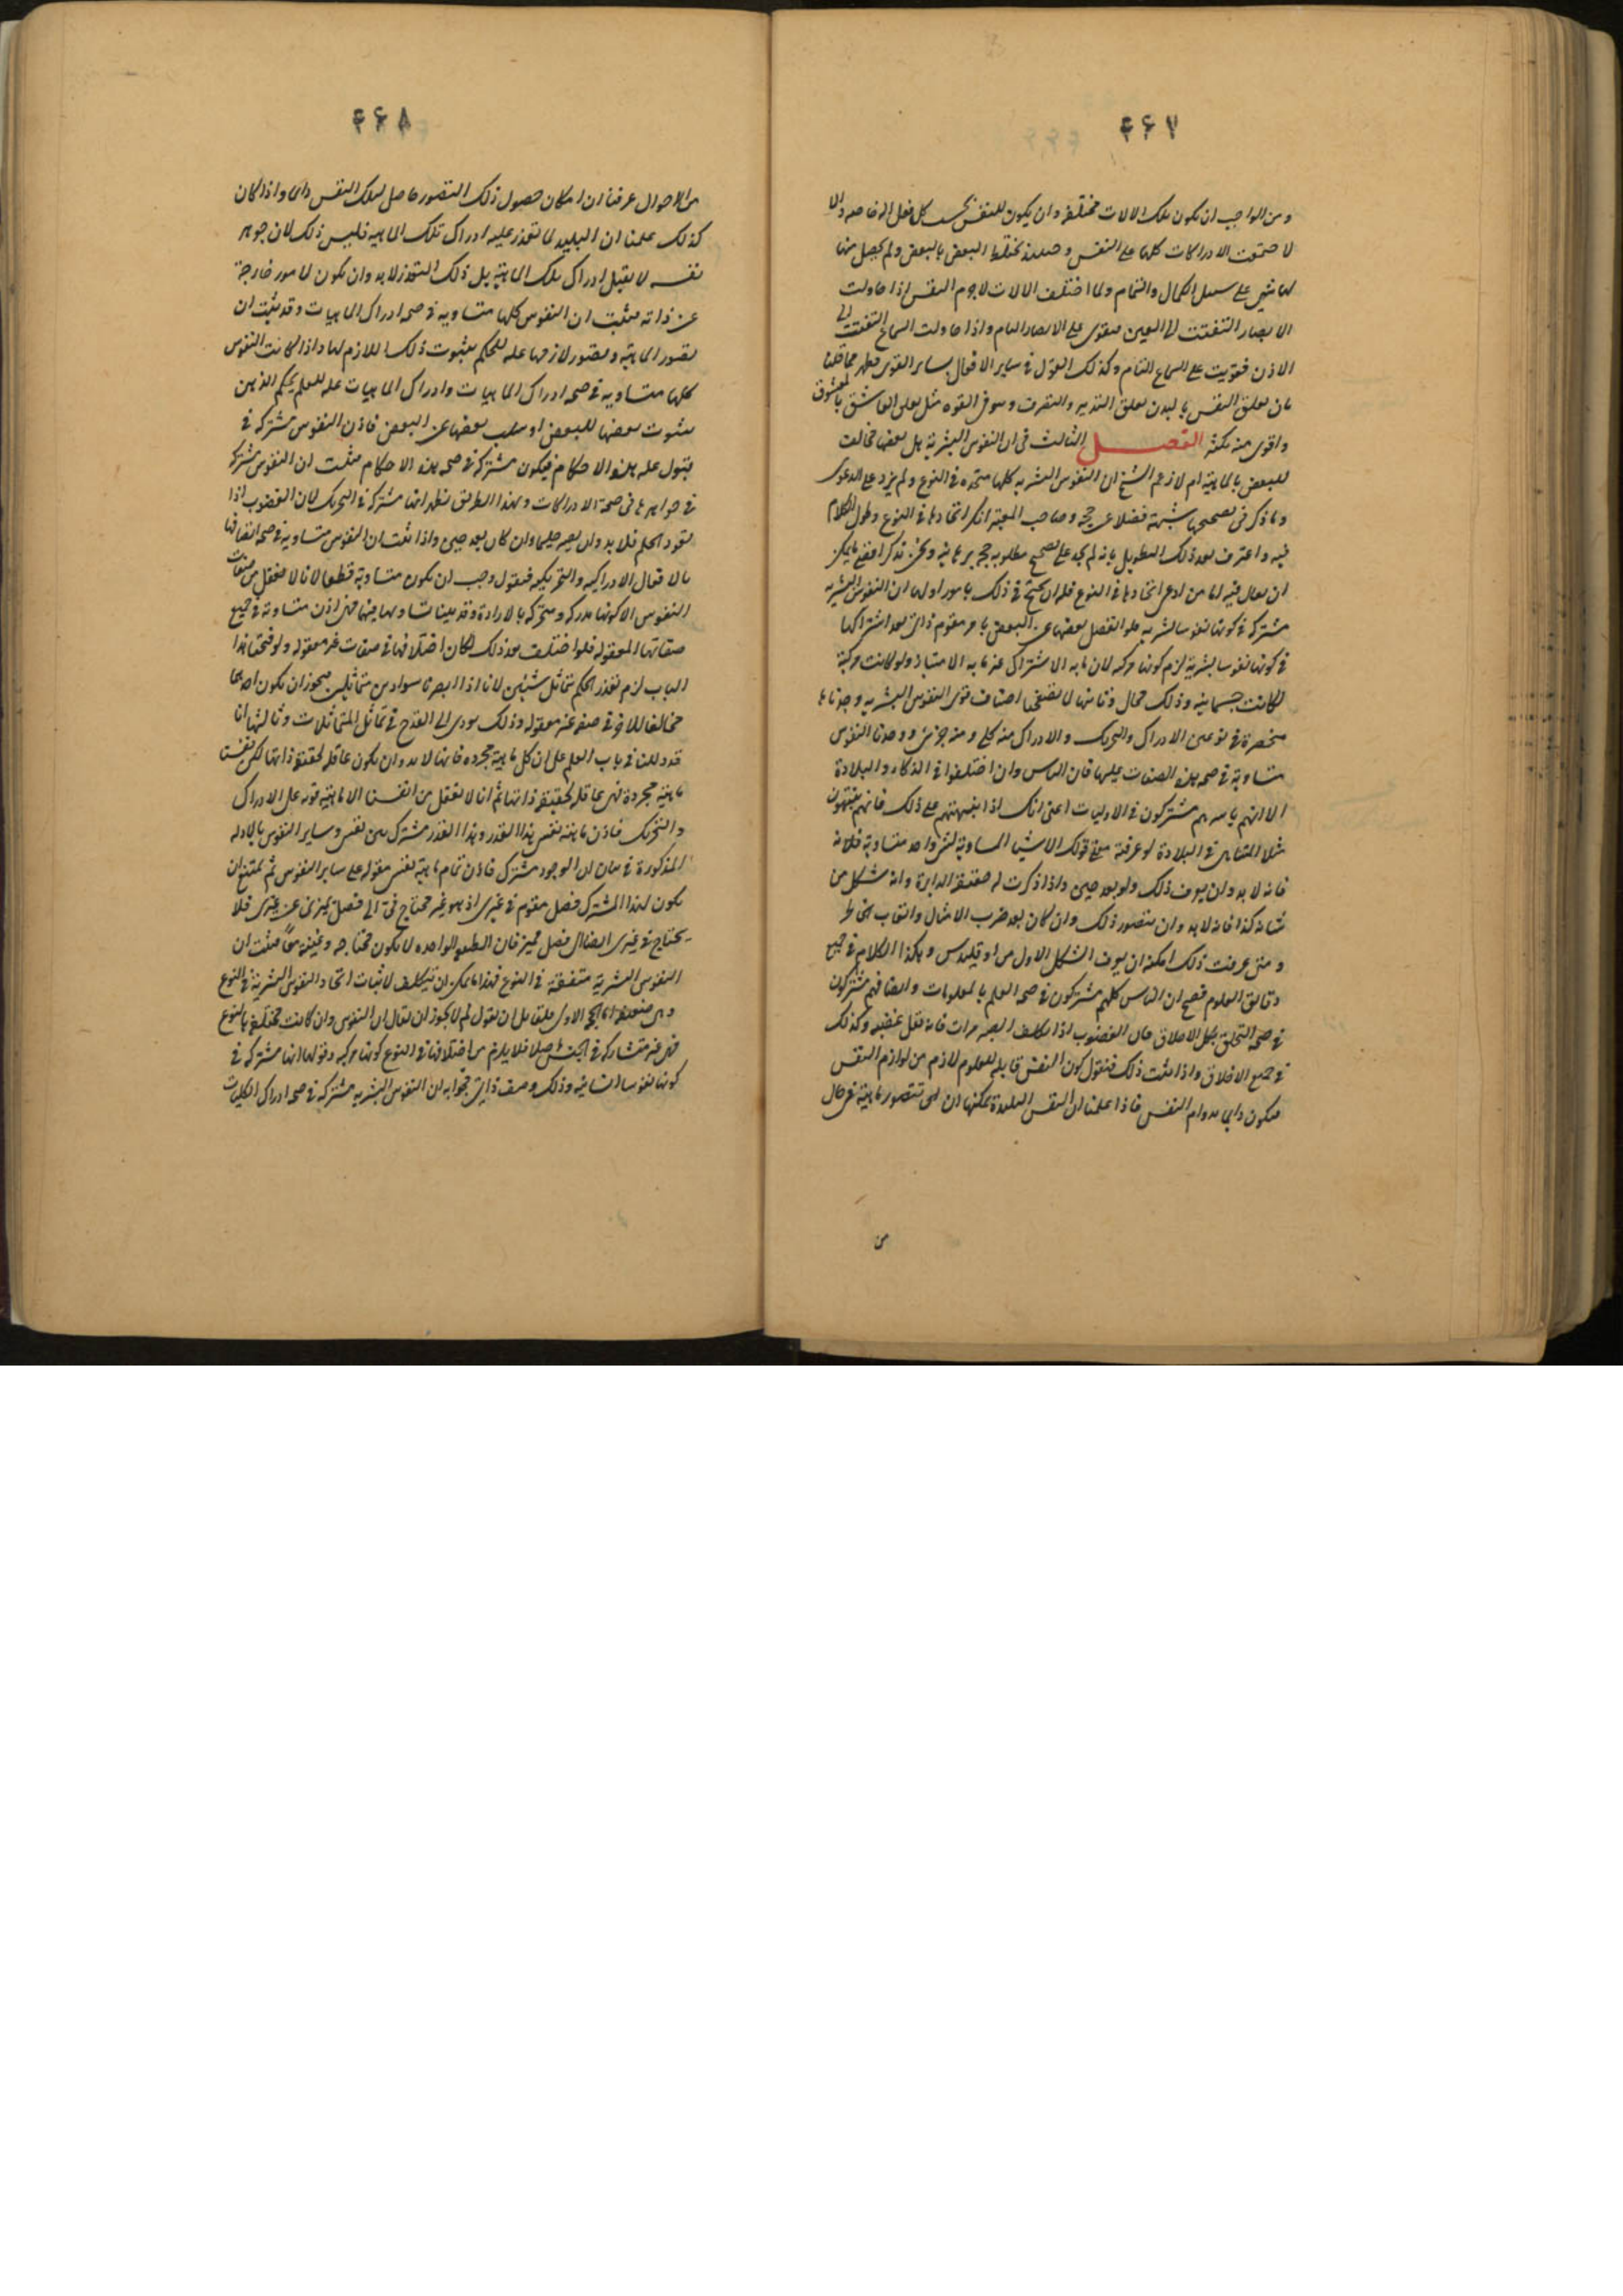 ۴۶۷
ومن الواجب ان يكون تلك الالات مختلفة وان يكون للنفس بحسب كل فعل اله خاصه والا
لاجتمعت الادراكات كلها على النفس وحينئذ تختلط البعض بالبعض ولم يحصل منها
شى على سبيل الكمال والتمام ولما اختلف الالات لاجرم النفس اذا حاولت
الابصار التفتت الى العين فتقوى على الابصار التام واذا حاولت السماع التفتت الى
الاذن فقويت على السماع التام وكذلك القول فى ساير الافعال بساير القوى فظهر مما قلنا
ان تعلق النفس بالبدن تعلق التدبير والتصرف وهو فى القوه مثل تعلق العاشق بالمعشوق
واقوى منه بكثير الفصل الثالث فى ان النفوس البشرية هل بعضها مخالف
للبعض بالماهية ام لا زعم الشيخ ان النفوس البشريه كلها متحده فى النوع ولم يزد على الدعوى
وما ذكر فى تصحيحها شبهة فضلا عن حجه وصاحب المعتبر انكر اتحادها فى النوع وطول الكلام
فيه واعترف بعد ذلك التطويل بانه لم يجد على تصحيح مطلوبه حجه برهانيه ونحن نذكر اقصى ما يمكن
ان يقال فيه اما من ادعى اتحادها فى النوع فله ان يحتج فى ذلك بامور اولها ان النفوس البشريه
مشتركه فى كونها نفوسا بشريه فلو انفصل بعضها عن البعض بامر مقوم ذاتى بعد اشتراكها
فى كونها نفوسا بشرية لزم كونها مركبه لان ما به الاشتراك غير ما به الامتياز ولو كانت مركبة
لكانت جسمانيه وذلك محال وثانيها لا تصفحنا اصناف قوى النفوس البشريه وجدناها
منحصرة فى نوعين الادراك والتحريك والادراك منه كلى ومنه جزئى ووجدنا النفوس
متساوية فى صحه هذه الصفات عليها فان الناس وان اختلفوا فى الذكاء والبلادة
الا انهم باسرهم مشتركون فى الاوليات اعنى انك اذا نبهتهم على ذلك فانهم ينتبهون
مثلا المتناهى فى البلادة لو عرفته معنى قولك الاشيا المساوية لشى واحد متساوية
فانه لا بد وان يعرف ذلك ولو بعد حين واذا ذكرت له حقيقة الدايرة وانه شكل من
شانه كذا فانه لا بد وان يتصور ذلك وان كان بعد ضرب الامثال واتعاب الخاطر
ومتى عرفت ذلك امكنه ان يعرف الشكل الاول من اوقليدس وهكذا الكلام فى جميع
دقائق العلوم فصح ان الناس كلهم مشتركون فى صحه العلم بالمعلومات وايضا فهم مشتركون
فى صحه التخلق بكل الاخلاق فان الغضوب اذا تكلف الصبر مرات فانه تقل غضبيه وكذلك
فى جميع الاخلاق واذا ثبت ذلك فنقول كون النفس قابله للعلوم لازم من لوازم النفس
فيكون دايما بدوام النفس فاذا علمنا ان النفس البليدة يمكنها ان تتصور ماهية فى حال
من
۴۶۸
من الاحوال عرفنا ان امكان حصول ذلك التصور حاصل لتلك النفس دايما واذا كان
كذلك علمنا ان البليد لما تعذر عليه ادراك تلك الماهيه فليس ذلك لان جوهر
نفسه لا يقبل ادراك تلك الماهية بل ذلك التعذر لا بد وان يكون لامور خارجة
عن ذاته فثبت ان النفوس كلها متساويه فى صحه ادراك الماهيات وقد ثبت ان
تصور الماهية وتصور لازمها عله للحكم بثبوت ذلك اللازم لها واذا كانت النفوس
كلها متساويه فى صحه ادراك الماهيات وادراك الماهيات عله للعلم بحكم الذهن
بثبوت بعضها للبعض او سلب بعضها عن البعض فاذن النفوس مشتركه فى
قبول عله هذه الاحكام فيكون مشتركة فى صحه هذه الاحكام فثبت ان النفوس مشتركه
فى جواهرها فى صحة الادراكات وبهذا الطريق نظهر انها مشتركة فى التحريك لان الغضوب اذا
تعود الحلم فلا بد وان يصير حليما وان كان بعد حين واذا ثبت ان النفوس متساويه فى صحه اتصافها
بالافعال الادراكيه والتحريكيه فنقول وجب ان يكون متساوية قطعا لانا لا نعقل من صفات
النفوس الا كونها مدركه ومتحركه بالارادة وقد بينا تساويها فيهما فهى اذن متساوية فى جميع
صفاتها المعقوله فلو اختلفت بعد ذلك لكان اختلافها فى صفات غير معقوله ولو فتحنا هذا
الباب لزم تعذر الحكم بتماثل شيئين لانا اذا ابصرنا سوادين متماثلين يجوز ان يكون احدهما
مخالفا للاخر فى صفه غير معقوله وذلك يودى الى القدح فى تماثل المتماثلات وثالثها انا
قد دللنا فى باب العلم على ان كل ماهية مجرده فانها لا بد وان يكون عاقله لحقيقة ذاتها لكن نفسنا
ماهية مجردة فهى عاقله لحقيقة ذاتها ثم انا لا نعقل من انفسنا الا ماهية قوه على الادراك
والتحريك فاذن ماهية نفسى هذا القدر وهذا القدر مشترك بين نفسى وساير النفوس بالادله
المذكورة فى بيان ان الوجود مشترك فاذن تمام ماهية نفسى مقوله على ساير النفوس ثم يمتنع ان
يكون لهذا المشترك فصل مقوم فى غيرى اذ هو غير محتاج فى الى فصل يميزنى عن غيرى فلا
يحتاج فى غيرى ايضا الى فصل مميز فان الطبيعه الواحده لا يكون محتاجه وغنيه معا فثبت ان
النفوس البشرية متفقة فى النوع فهذا ما يمكن ان يتكلف لاثبات اتحاد النفوس البشرية فى النوع
وهى ضعيفة اما الحجه الاولى فلقائل ان يقول لم لا يجوز ان يقال ان النفوس وان كانت مختلفة بالنوع
فهى غير متشاركه فى الجنس اصلا فلا يلزم من اختلافها فى النوع كونها مركبه وقولها انها مشتركه فى
كونها نفوسا انسانيه وذلك وصف ذاتى فجوابه ان النفوس البشريه مشتركه فى صحه ادراك الكليات